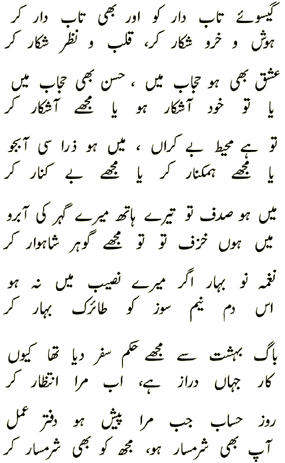 گیسوئے تاب دار کو اور بھی تاب دار کر
ہوش و خرد شکار کر، قلب و نظر شکار کر
عشق بھی ہو حجاب میں ، حسن بھی حجاب میں
یا تو خود آشکار ہو یا مجھے آشکار کر
تو ہے محیط بے کراں ، میں ہو ذرا سی آبجو
یا مجھے ہمکنار کر یا مجھے بے کنار کر
میں ہو صدف تو تیرے ہاتھ میرے گہر کی آبرو
میں ہوں خزف تو تو مجھے گوہر شاہوار کر
نغمہ نو بہار اگر میرے نصیب میں نہ ہو
اس دم نیم سوز کو طائرک بہار کر
باگ بہشت سے مجھے حکم سفر دیا تھا کیوں
کار جہاں دراز ہے، اب مرا انتظار کر
روز حساب جب مرا پیش ہو دفتر عمل
آپ بھی شرمسار ہو، مجھ کو بھی شرمسار کر